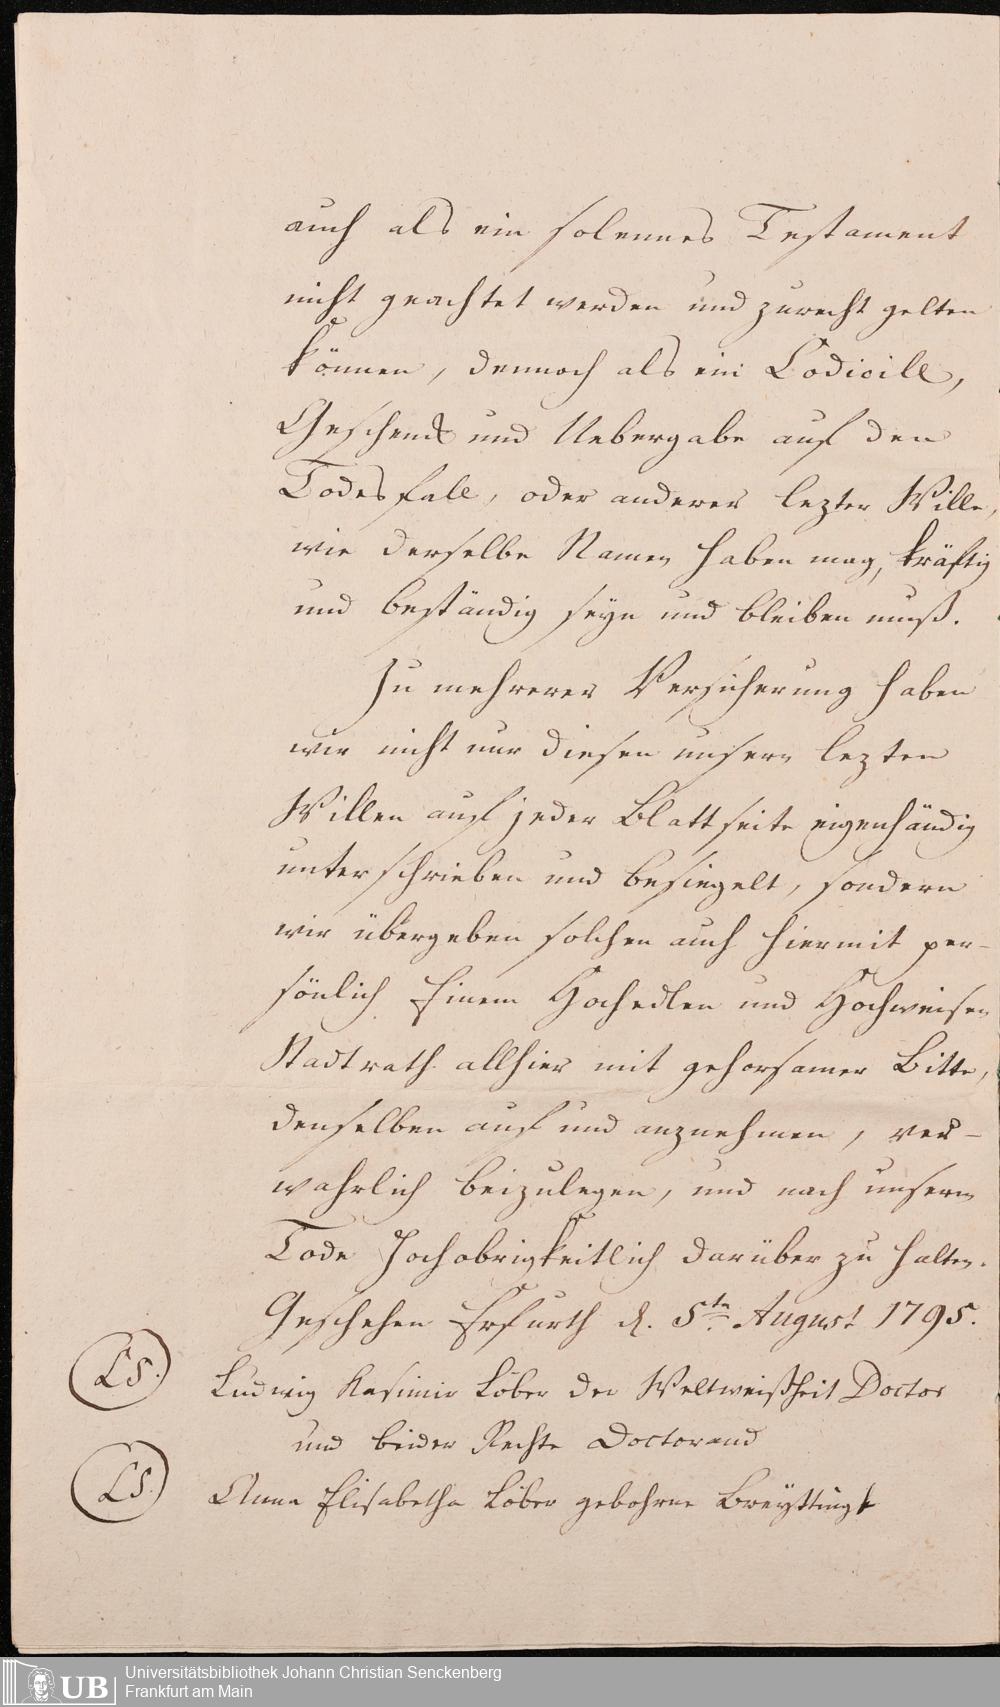 auch als ein solennes Testament
nicht geachtet werden und zurecht gelten
können, dennoch als ein Codicill,
Geschenk und Uebergabe auf den
Todesfall, oder anderer lezter Wille,
wie derselbe Namen haben mag, kräftig
und beständig seyn und bleiben muß.
Zu mehrerer Versicherung haben
wir nicht nur diesen unsern lezten
Willen auf jeder Blattseite eigenhändig
unterschrieben und besiegelt, sondern
wir übergeben solchen auch hiermit per-
sönlich Einem Hochedlen und Hochweisen
Stadtrath allhier mit gehorsamer Bitte,
denselben auf und anzunehmen, ver-
wahrlich beizulegen, und nach unserm
Tode Hochobrigkeitlich darüber zu halten.
Geschehen Erfurth d. 5te August 1795.
LS. Ludwig Kasimir Löber der Weltweißheit Doctor
und beider Rechte Doctorand
LS. Anna Elisabetha Löber gebohrne
Universitätsbibliothek Johann Christian Senckenberg
Frankfurt am Main
UB